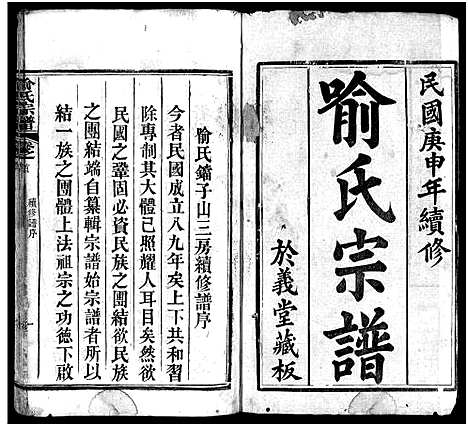 民國庚申年續修
喻氏宗譜
於義堂藏板
喻氏鑪子山三房續修譜序
今者民國成立八九年矣上下共和習
除專制其大體已照耀人耳目矣然欲
民國之鞏固必資民族之團結欲民族
之團結端自纂輯宗譜始宗譜者所以
結一族之團體上法祖宗之功德下啟
喻氏宗譜
卷之首
續修譜序